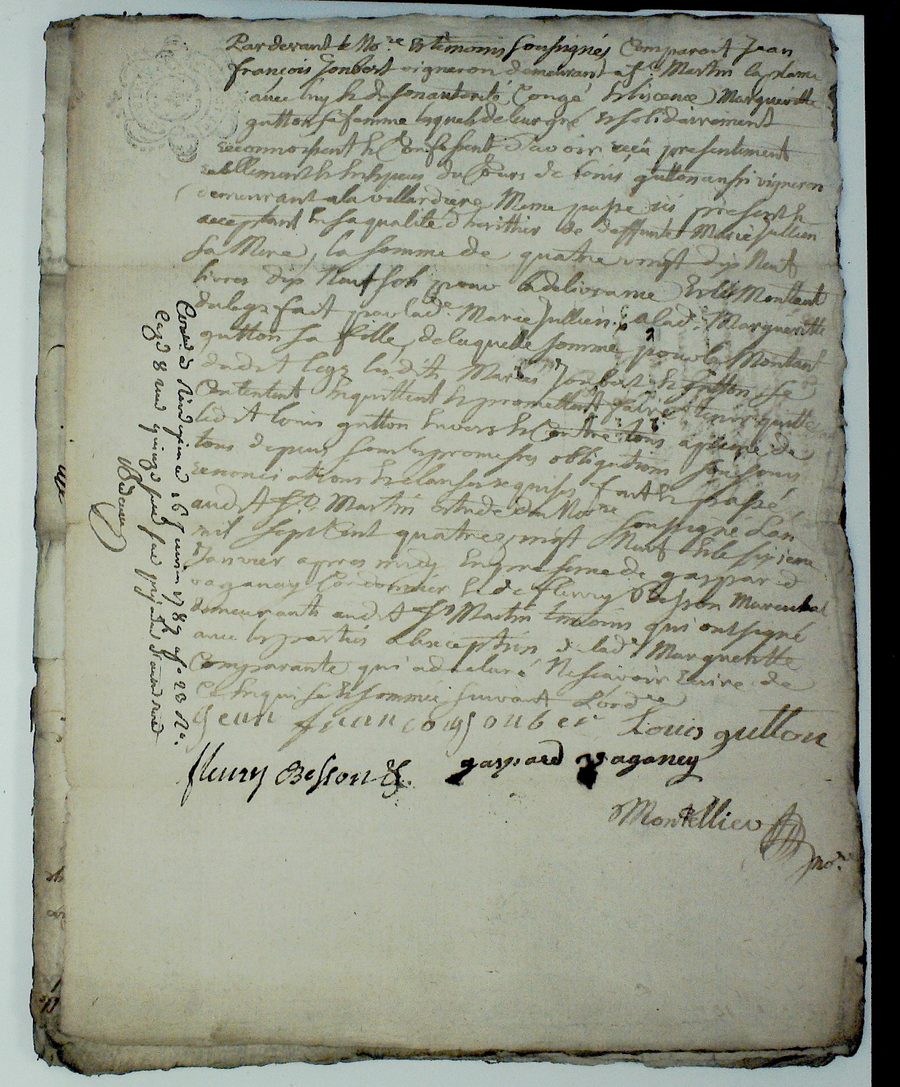 Pardevant le No.re & temoins soussignés Comparait Jean
françois Joubert vigneron demeurant a St Martin la plaine
avec luy & de son autorité Congé & licence Margueritte
gutton sa femme lesquels de leur gré & solidairement
reconnoissent & Confessent d'avoir recu presentement
reellement & du de Louis gutton aussi vigneron
demeurant a la villardiere Meme paroisse icy present &
acceptant En sa qualité d'heritier de deffunte Marie Jullien
Sa Mere, la somme de quatre vingt dix Neuf
livres dix Neuf sols pour la delivrance & le Montant
du legs fait par lad.e Marie Jullien a lad.e Margueritte
gutton sa fille, de laquelle somme pour le Montant
dudit legs lesdits Mariés Joubert & gutton se
Contentent En quittent & promettent faire tenir quitte
ledit Louis gutton Envers & Contre tous a peine de
tous depens sous les promesses obligations
renonciations & clauses requises fait & passé
audit St Martin Etude du No.re soussigné L'an
mil sept Cent quatre vingt Neuf & le sixieme
Janvier apres midy En presence de gaspard
vaganay Cordonnier & de fleury Besson Marechal
demeurants audit St Martin temoins qui ont signé
avec les parties a l'exception de lad.e Margueritte
Comparante qui a declaré Ne scavoir Ecrire de
Ce Enquise & sommée suivant L'ord.ce
Jean francois Jouber Louis gutton
fleury Besson gaspard vaganey
Montellier
no.re
16 Janvier 1789 fo 23 R.o
Reçu quinze sous